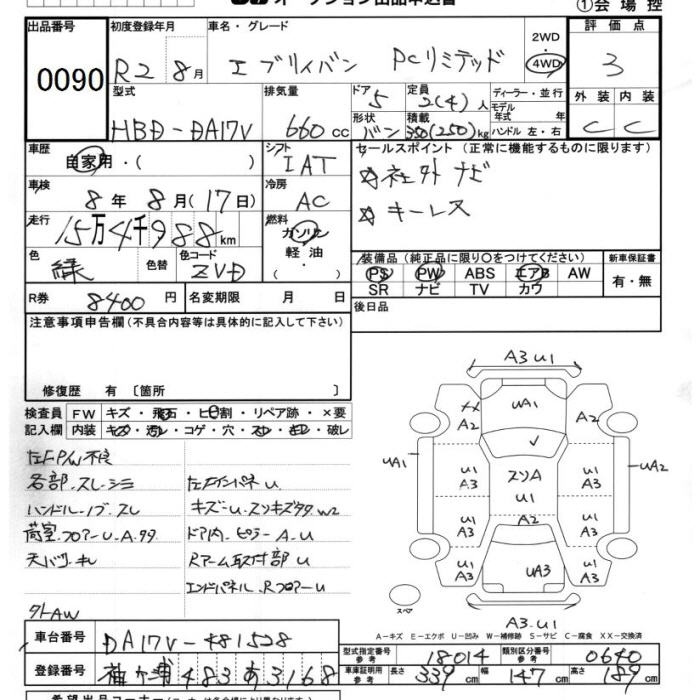 ①会場控
出品番号 初度登録年月 車名・グレード 2WD 4WD 評価点
0090 R2 8月 エブリィバン PCリミテッド 3
型式 排気量 ドア 定員 ディーラー・並行 外装 内装
HBD-DA17V 660cc 5 2(4)人 モデル年式 年 C C
形状 積載 ハンドル 左・右
バン 350(250)kg
車歴 シフト セールスポイント (正常に機能するものに限ります)
自家用・( ) IAT
☆社外ナビ
車検 冷房
8年 8月(17日) AC
☆キーレス
走行 燃料
15万4千988km ガソリン
軽油・( )
色 色替 色コード
緑 ZVD
装備品(純正品に限り○をつけてください) 新車保証書
PS PW ABS エアB AW 有・無
SR ナビ TV カワ
R券 8400円 名変期限 月 日
後日品
注意事項申告欄(不具合内容等は具体的に記入して下さい)
修復歴 有〔箇所 〕
検査員 FW キズ・飛石・ヒビ割・リペア跡・×要
記入欄 内装 キズ・汚レ・コゲ・穴・スレ・キレ・破レ
左FP/W不良
各部・スレ・シミ
ハンドル・ノブ・スレ
荷室・フロアー・U・A・サタ
天バリ・キレ
外AW
左FインパネU
キズ・U・スソキズサタ W2
ドア内・ピラーA・U
Rアーム取付部U
エンドパネル、RフロアーU
A3 U1
UA1
XX
A2
A2
UA1
UA2
U1
A3
スソA
U1
U1
A3
U1
A3
A2
U1
A3
U1
A3
UA3
U1
A3
スペア
A3・U1
A-キズ E-エクボ U-凹み W-補修跡 S-サビ C-腐食 XX-交換済
車台番号 DA17V-481528
型式指定番号 参考 18014 類別区分番号 参考 0640
登録番号 袖ヶ浦 483 あ 3168
車庫証明用 参考 長さ 339cm 幅 147cm 高さ 189cm